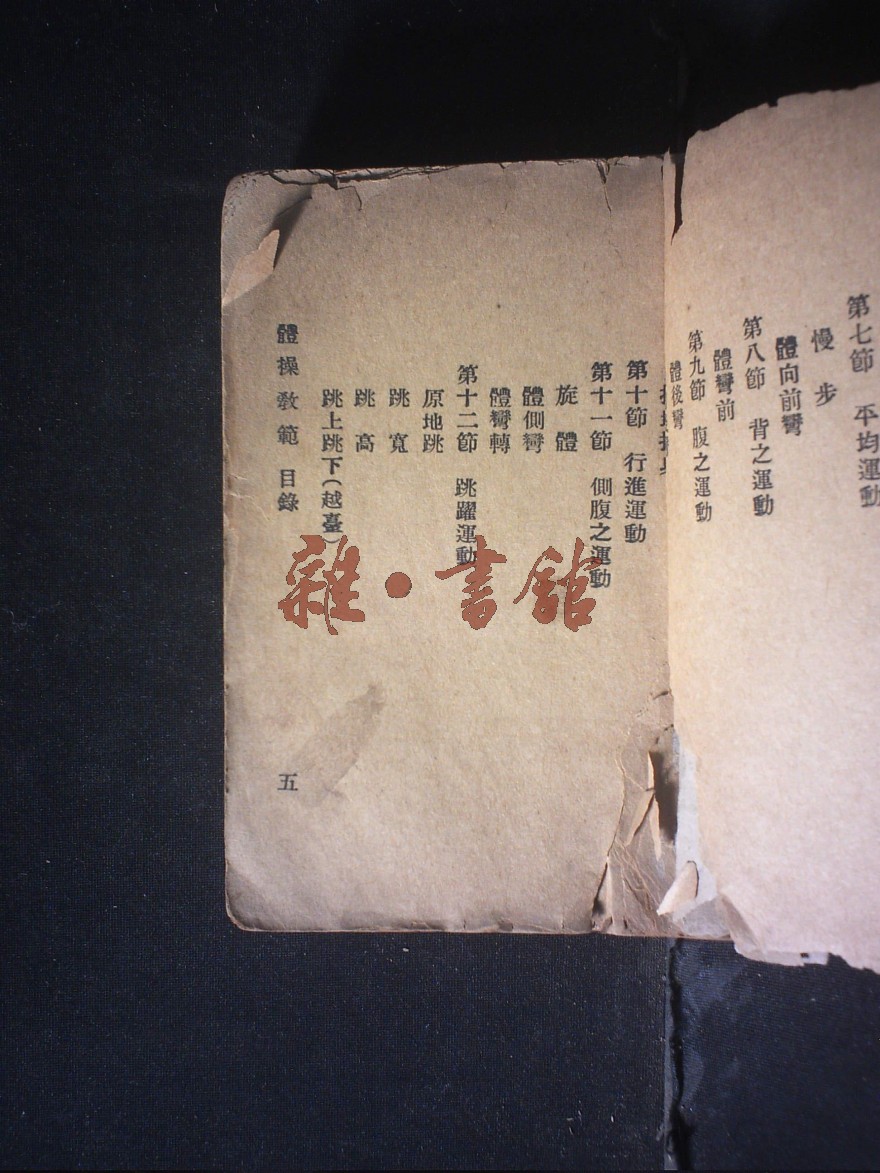 第七節 平均運動
慢步
體向前彎
第八節 背之運動
體彎前
第九節 腹之運動
體後彎
第十節 行進運動
第十一節 側腹之運動
旋體
體側彎
體彎轉
第十二節 跳躍運動
原地跳
跳寬
跳高
跳上跳下(越臺)
體操教範 目錄
五
雜·書館